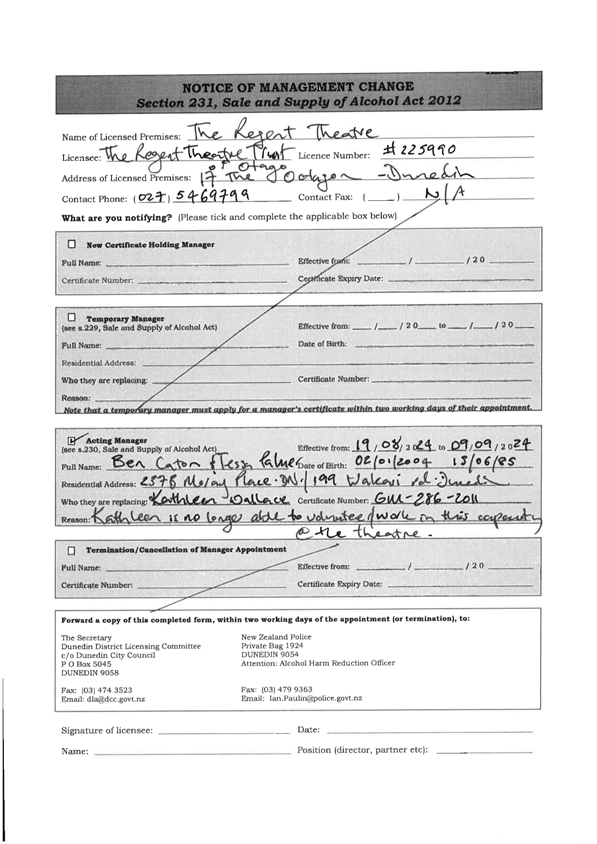 NOTICE OF MANAGEMENT CHANGE
Section 231, Sale and Supply of Alcohol Act 2012
Name of Licensed Premises: The Regent Theatre
Licensee: The Regent Theatre Trust of Otago Licence Number: #225990
Address of Licensed Premises: 17 The Octagon - Dunedin
Contact Phone: (027) 5469799 Contact Fax: ( ) N/A
What are you notifying? (Please tick and complete the applicable box below)
☐ New Certificate Holding Manager
Full Name: Effective from: / / 20
Certificate Number: Certificate Expiry Date:
☐ Temporary Manager
(see s.229, Sale and Supply of Alcohol Act) Effective from: / / 20 to / / 20
Full Name: Date of Birth:
Residential Address:
Who they are replacing: Certificate Number:
Reason:
Note that a temporary manager must apply for a manager's certificate within two working days of their appointment.
☑ Acting Manager
(see s.230, Sale and Supply of Alcohol Act) Effective from: 19/08/2024 to 09/09/2024
Full Name: Ben Caton & Tess Palmer Date of Birth: 02/01/2004 13/06/85
Residential Address: Place DN / 199 rd
Who they are replacing: Kathleen Wallace Certificate Number: GM-286-2011
Reason: Kathleen is no longer able to volunteer/work in this capacity
@ the theatre.
☐ Termination/Cancellation of Manager Appointment
Full Name: Effective from: / / 20
Certificate Number: Certificate Expiry Date:
Forward a copy of this completed form, within two working days of the appointment (or termination), to:
The Secretary New Zealand Police
Dunedin District Licensing Committee Private Bag 1924
c/o Dunedin City Council DUNEDIN 9054
P O Box 5045 Attention: Alcohol Harm Reduction Officer
DUNEDIN 9058
Fax: (03) 474 3523 Fax: (03) 479 9363
Email: dla@dcc.govt.nz Email: Ian.Paulin@police.govt.nz
Signature of licensee: Date:
Name: Position (director, partner etc):